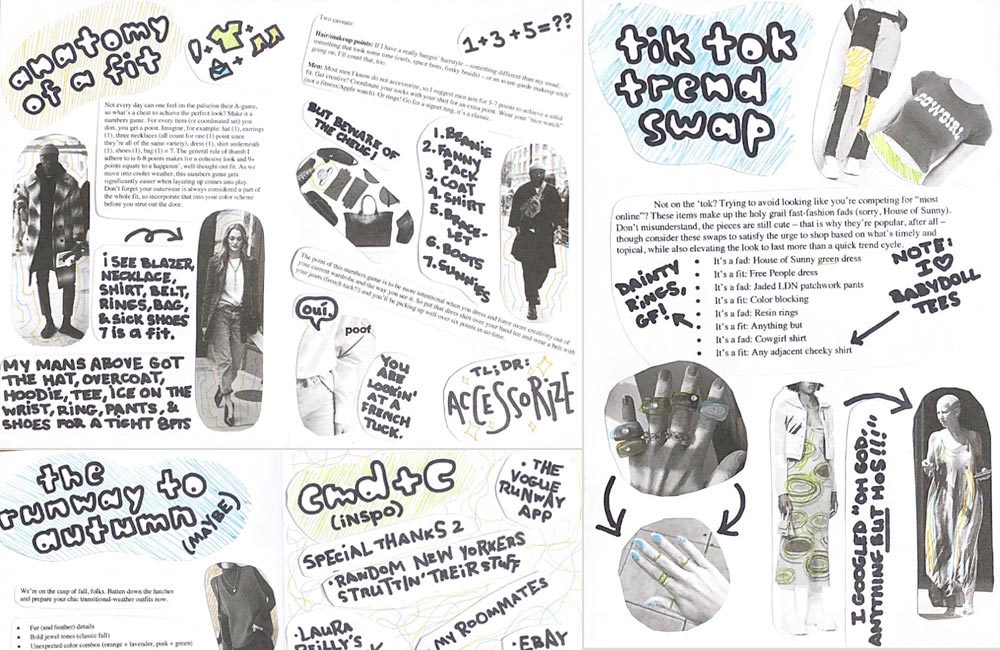 anatomy
of a fit
Not every day can one feel on the pulse on their A-game,
so what's a cheat to achieve the perfect look? Make it a
numbers game. For every item (or coordinated set) you
don, you get a point. Imagine, for example: hat (1), earrings
(1), three necklaces (all count for one (1) point since
they're all of the same variety), dress (1), shirt underneath
(1), shoes (1), bag (1) = 7. The general rule of thumb I
adhere to is 6-8 points makes for a cohesive look and 9+
points equate to a happenin', well-thought-out fit. As we
move into cooler weather, this numbers game gets
significantly easier when layering up comes into play.
Don't forget your outerwear is always considered a part of
the whole fit, so incorporate that into your color scheme
before you strut out the door.
I SEE BLAZER,
NECKLACE,
SHIRT, BELT,
RINGS, BAG,
& SICK SHOES
7 IS A FIT.
MY MANS ABOVE GOT
THE HAT, OVERCOAT,
HOODIE, TEE, ICE ON THE
WRIST, RING, PANTS, &
SHOES FOR A TIGHT 8PTS
Two caveats:
1+3+5=??
Hair/makeup points: If I have a really bangin' hairstyle – something different than my usual,
something that took some time (curls, space buns, funky braids) – or an avant-garde makeup stick'
going on, I'll count that, too.
Men: Most men I know do not accessorize, so I suggest men aim for 5-7 points to achieve a solid
fit. Get creative! Coordinate your socks with your shirt for an extra point. Wear your "nice watch"
(not a fitness/Apple watch). Or rings! Go for a signet ring, it's a classic.
BUT BEWARE OF
THE CHEUG!
1. BEANIE
2. FANNY
PACK
3. COAT
4. SHIRT
5. BRACE-
LET
6. BOOTS
7. SUNNIES
The point of this numbers game is to be more intentional when you dress and force more creativity out of
your current wardrobe and the way you see it. So put that dress shirt over your band tee and wear a belt with
your jeans (french tuck?!) and you'll be picking up well over six points in no time.
oui.
poof
YOU
ARE
LOOKIN'
AT A
FRENCH
TUCK.
TL;DR:
ACCESSORIZE
tik tok
trend
swap
COWGIRL!
Not on the 'tok? Trying to avoid looking like you're competing for "most
online"? These items make up the holy grail fast-fashion fads (sorry, House of Sunny).
Don't misunderstand, the pieces are still cute – that is why they're popular, after all –
though consider these swaps to satisfy the urge to shop based on what's timely and
topical, while also elevating the look to last more than a quick trend cycle.
• It's a fad: House of Sunny green dress
• It's a fit: Free People dress
• It's a fad: Jaded LDN patchwork pants
• It's a fit: Color blocking
• It's a fad: Resin rings
• It's a fit: Anything but
• It's a fad: Cowgirl shirt
• It's a fit: Any adjacent cheeky shirt
DAINTY
RINGS,
GF!
NOTE:
I ♡
BABYDOLL
TEES
I GOOGLED "OH GOD,
ANYTHING BUT HOS!!!"
the
runway to
autumn
(MAYBE)
We're on the cusp of fall, folks. Batten down the hatches
and prepare your chic transitional-weather outfits now.
• Fur (and feather) details
• Bold jewel tones (classic fall)
• Unexpected color combos (orange + lavender, pink + green)
cmd+c
(INSPO)
• THE
VOGUE
RUNWAY
APP
SPECIAL THANKS 2
• RANDOM NEW YORKERS
STRUTTIN' THEIR STUFF
MY ROOMMATES
• LAURA
REILLY'S
• EBAY